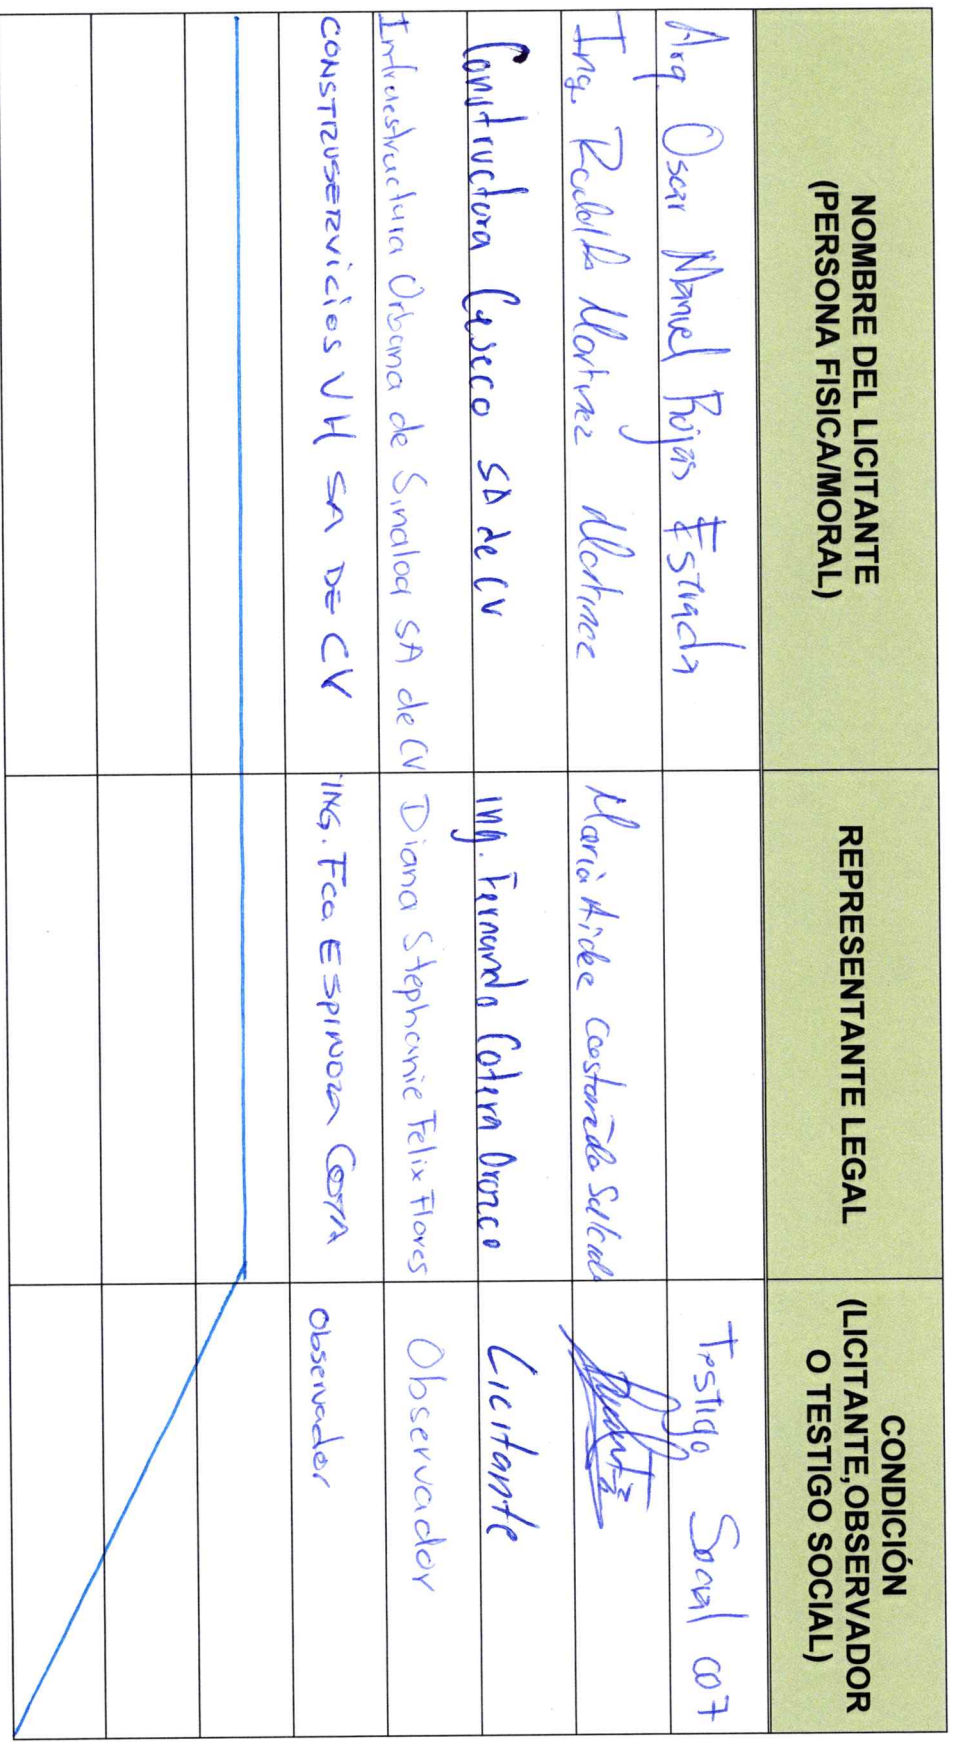 NOMBRE DEL LICITANTE
(PERSONA FISICA/MORAL)
REPRESENTANTE LEGAL
CONDICIÓN
(LICITANTE,OBSERVADOR
O TESTIGO SOCIAL)
Arq. Oscar Manuel Rojas Estrada
Testigo Social 007
Ing. Rodolfo Martinez Martinez
Maria Aidee Castañeda Salcido
Constructora Cyseco SA de CV
Ing. Fernando Cotera Orozco
Licitante
Infraestructura Urbana de Sinaloa SA de CV
Diana Stephanie Felix Flores
Observador
CONSTRUSERVICIOS VH SA DE CV
ING. Fco. ESPINOZA COTA
Observador